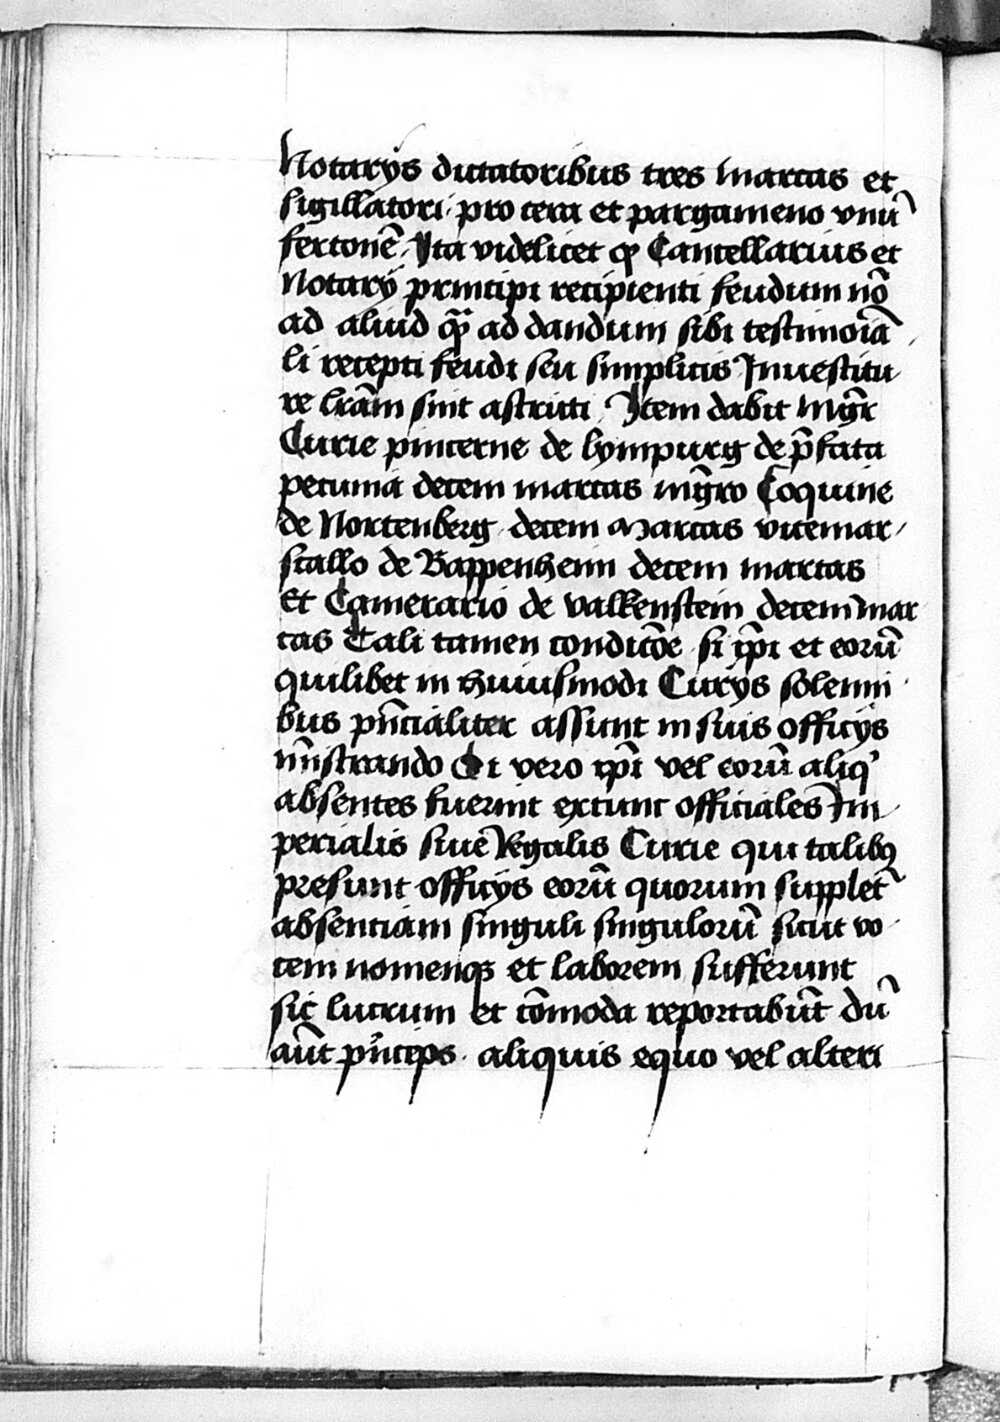 Notarÿs dictatoribus tres marcas et
sigillatori pro cera et pargameno vnū
fertonē Ita videlicet ꝙ Cancellarius et
Notarÿ principi recipienti feudum nō
ad aliud qᷓ ad dandum sibi testimoīa
li recepti feudi seu simplicis Inuestitu
re lrām sint astricti Item dabit mgr̄
Curie pincerne de lympurg de p̄fata
pecunia decem marcas mgr̄o Coquine
de Nortenberg decem marcas vicemar
scallo de Bappenheim decem marcas
Et Camerario de valkenstein decem mar
cas Tali tamen condicōe si ip̄i et eorū
quilibet in huiusmodi Curÿs solenni
bus pn̄cialiter assunt in suis officÿs
mīstrando Si vero ip̄i vel eorū aliqͥ
absentes fuerint extunc officiales Im
perialis siue Regalis Curie qui talibꝰ
presunt officÿs eorū quorum supplēt
absentiam singuli singulorū sicut vo
cem nomenqꝫ et laborem sufferunt
sic lucrum et cōmoda reportabūt dū
aūt pͥnceps aliquis equo vel alteri